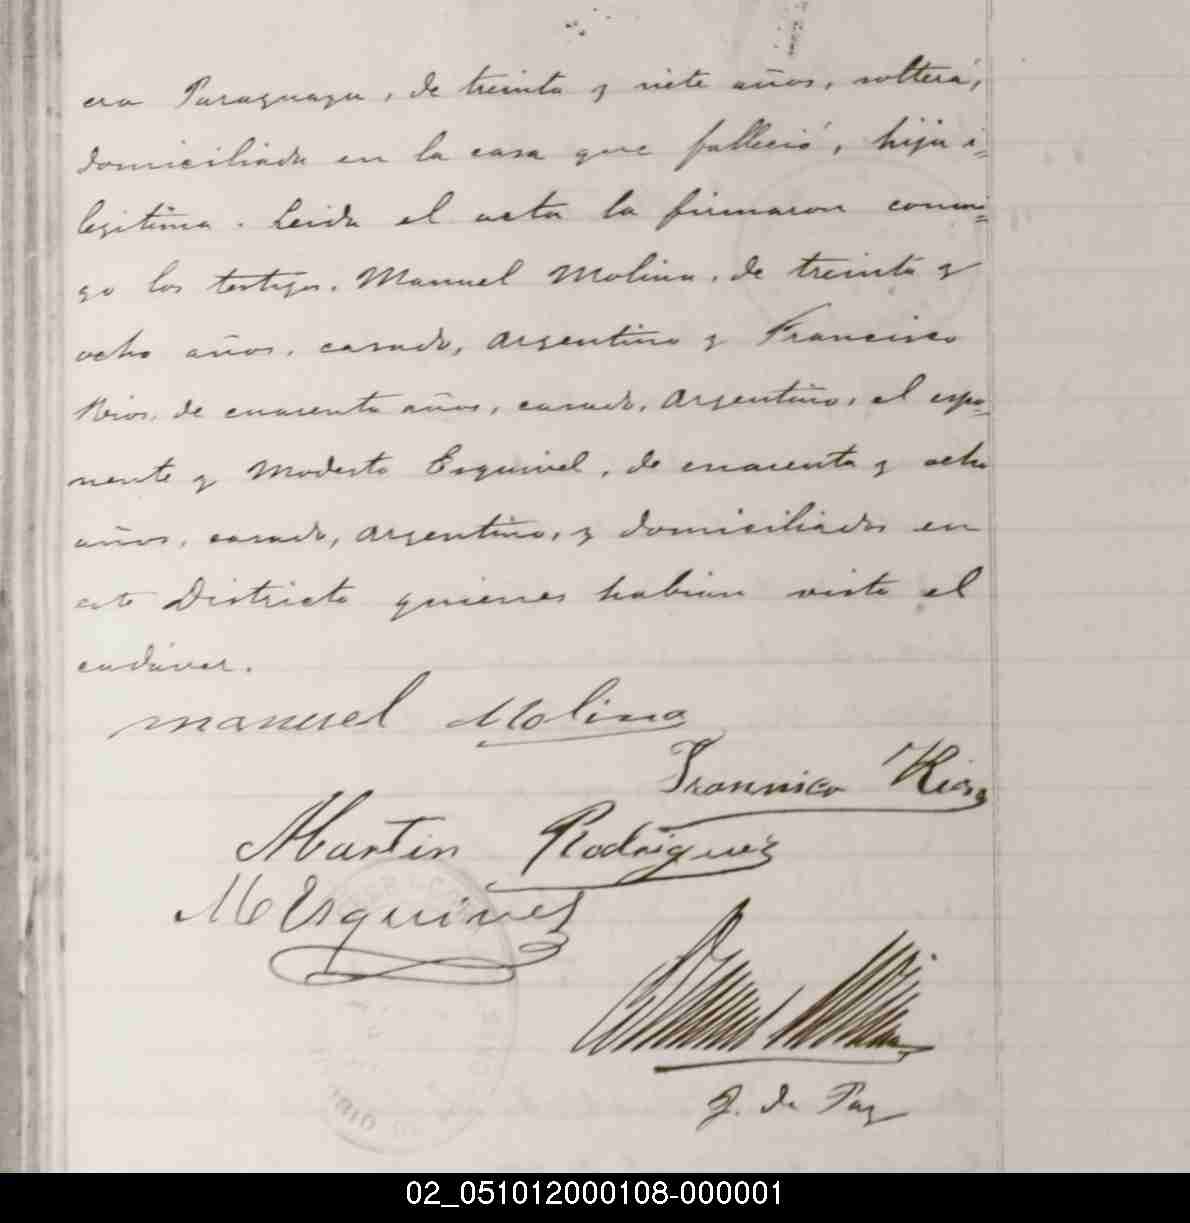 era Paraguaya, de treinta y siete años, soltera,
domiciliada en la casa que falleció, hija i=
legitima. Leida el acta la firmaron conmi=
go los testigos. Manuel Molina, de treinta y
ocho años, casado, Argentino y Francisco
Rios, de cuarenta años, casado, Argentino, el espo=
nente y Modesto Esquivel, de cuarenta y ocho
años, casado, Argentino, y domiciliados en
este Districto quienes habian visto el
cadáver.
Manuel Molina
Francisco Rios
Martin Rodriguez
M Esquivel
J. de Paz
02_051012000108-000001